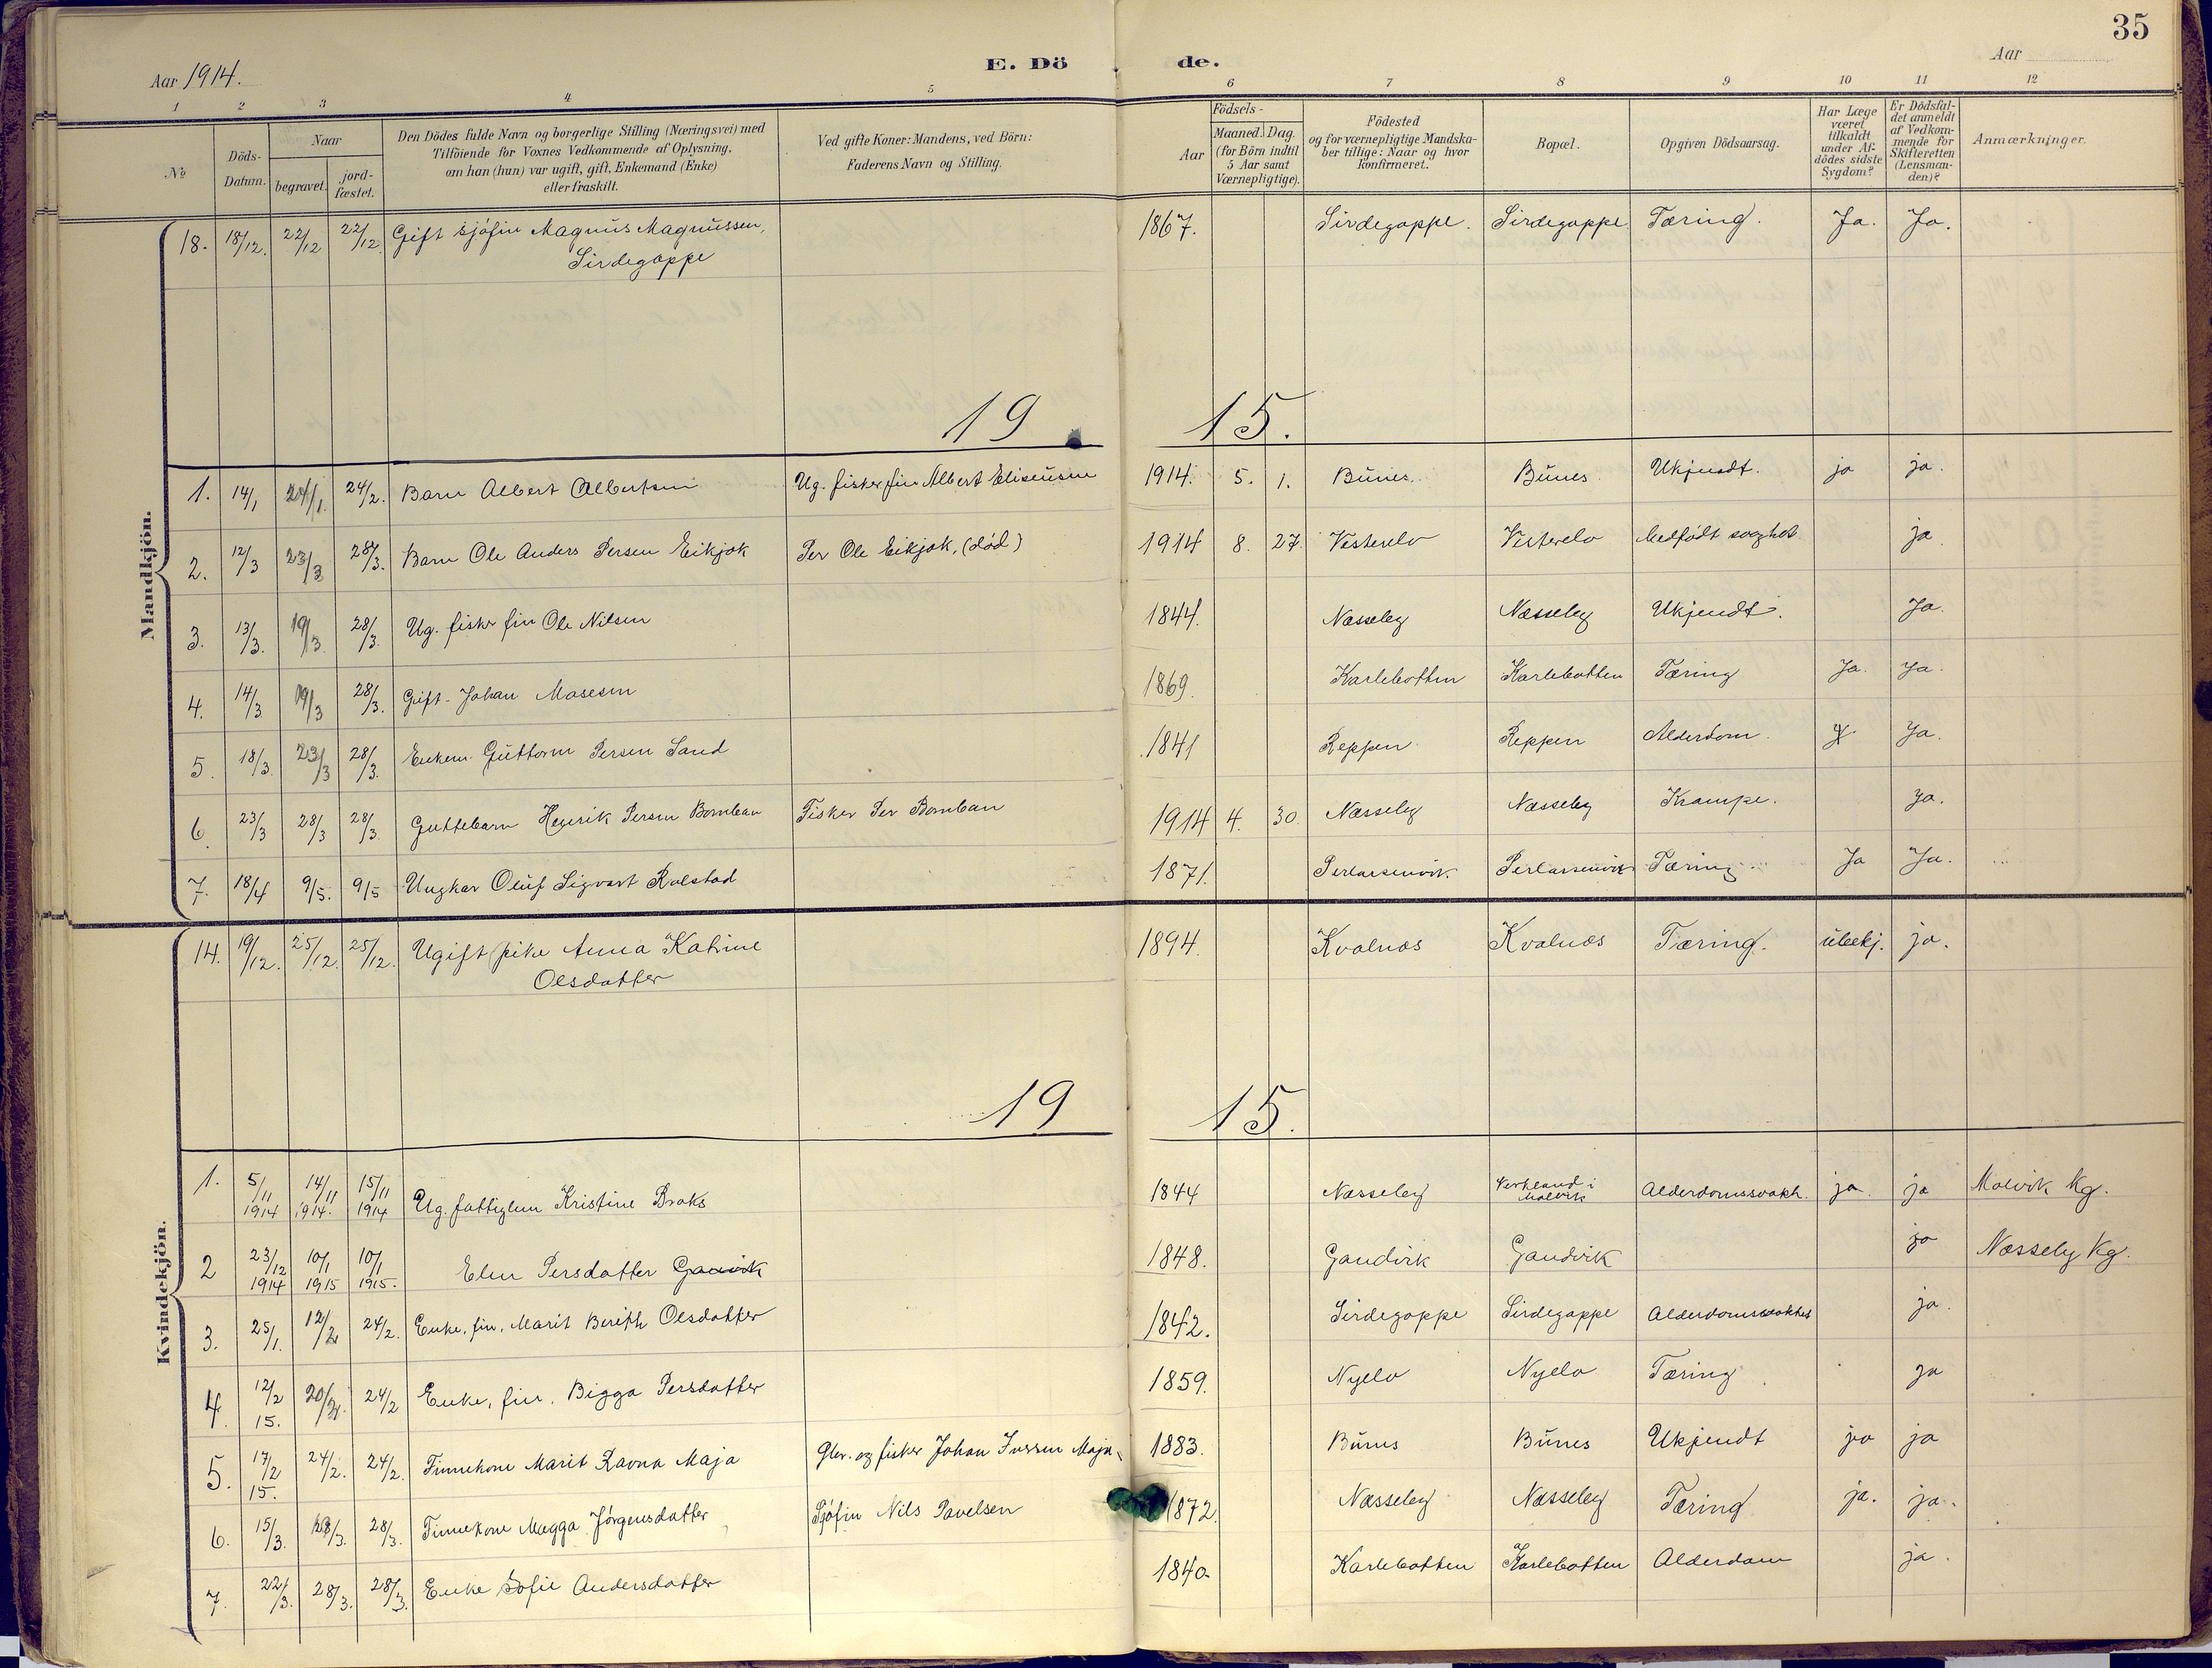 35
Aar 1914. E. Dö de. Aar
1 2 3 4 5 6 7 8 9 10 11 12
No
Döds-Datum.
Naar
begravet.
jord-fæstet.
Den Dödes fulde Navn og borgerlige Stilling (Næringsvei) med
Tilföiende for Voxnes Vedkommende af Oplysning,
om han (hun) var ugift, gift, Enkemand (Enke)
eller fraskilt.
Ved gifte Koner: Mandens, ved Börn:
Faderens Navn og Stilling.
Födsels-
Aar
Maaned. Dag.
(for Börn indtil
5 Aar samt
Værnepligtige).
Födested
og for værnepligtige Mandska-
ber tillige: Naar og hvor
konfirmeret.
Bopæl.
Opgiven Dödsaarsag.
Har Læge
været
tilkaldt
under Af-
dödes sidste
Sygdom?
Er Dödsfal-
det anmeldt
af Vedkom-
mende for
Skifteretten
(Lensman-
den)?
Anmærkninger.
Mandkjön.
18. 18/12. 22/12 22/12. Gift sjøfin Magnus Magnussen, 1867. Sirdegoppe. Sirdegoppe Tæring. Ja. Ja.
Sirdegoppe
19 15.
1. 14/1 24/1. 24/2. Barn Albert Albertsen Ug. fisker fin Albert Eliseusen 1914. 5. 1. Bunes Bunes Ukjendt. ja ja.
2. 12/3 23/3 28/3. Barn Ole Anders Persen Eikjok Per Ole Eikjok, (død) 1914 8. 27. Vesterelv Vesterelv Medfødt svaghet ja
3. 13/3. 19/3. 28/3. Ug. fisker fin Ole Nilsen 1844. Næsseby Næsseby Ukjendt. Ja.
4. 14/3 19/3 28/3. Gift. Johan Mosesen 1869. Karlebotten Karlebotten Tæring Ja. Ja.
5. 18/3. 23/3 28/3. Enkem. Guttorm Persen Sand 1841 Reppen. Reppen Alderdom. Ja.
6. 23/3 28/3 28/3. Guttebarn Henrik Persen Bomban Fisker Per Bomban 1914 4. 30. Næsseby Næsseby Krampe. Ja.
7. 18/4 9/5. 9/5 Ungkar Oluf Sigvart Rolstad 1871. Perlarsenvik. Perlarsenvik Tæring. Ja Ja.
Kvindekjön.
14. 19/12. 25/12. 25/12. Ugift pike Anna Katrine 1894. Kvalnæs Kvalnæs Tæring. ubekj. ja.
Olsdatter
19 15.
1. 5/11 1914 14/11 1914. 15/11 1914 Ug. fattiglem Kristine Broks 1844 Næsseby Verkland i Malvik Alderdomssvakh. ja. ja Malvik Kg.
2 23/12 1914 10/1 1915 10/1 1915. Elen Persdatter Ganvik 1848. Gandvik Gandvik ja Næsseby Kg.
3. 25/1. 12/2 24/2. Enke, fin, Marit Berith Olsdatter 1842. Sirdegoppe Sirdegoppe Alderdomssvakhet ja.
4. 12/2 15. 20/2. 24/2 Enke, fin, Bigga Persdatter 1859. Nyelv Nyelv Tæring ja
5. 17/2 15. 24/2. 24/2. Finnekone Marit Ravna Maja Gbr. og fisker Johan Iversen Maja 1883. Bunes Bunes Ukjendt ja ja
6. 15/3. 28/3. 28/3. Finnekone Magga Jørgensdatter Sjøfin Nils Pavelsen 1872. Næsseby Næsseby Tæring ja. ja.
7. 22/3. 28/3. 28/3. Enke Sofie Andersdatter 1840. Karlebotten Karlebotten Alderdom ja.